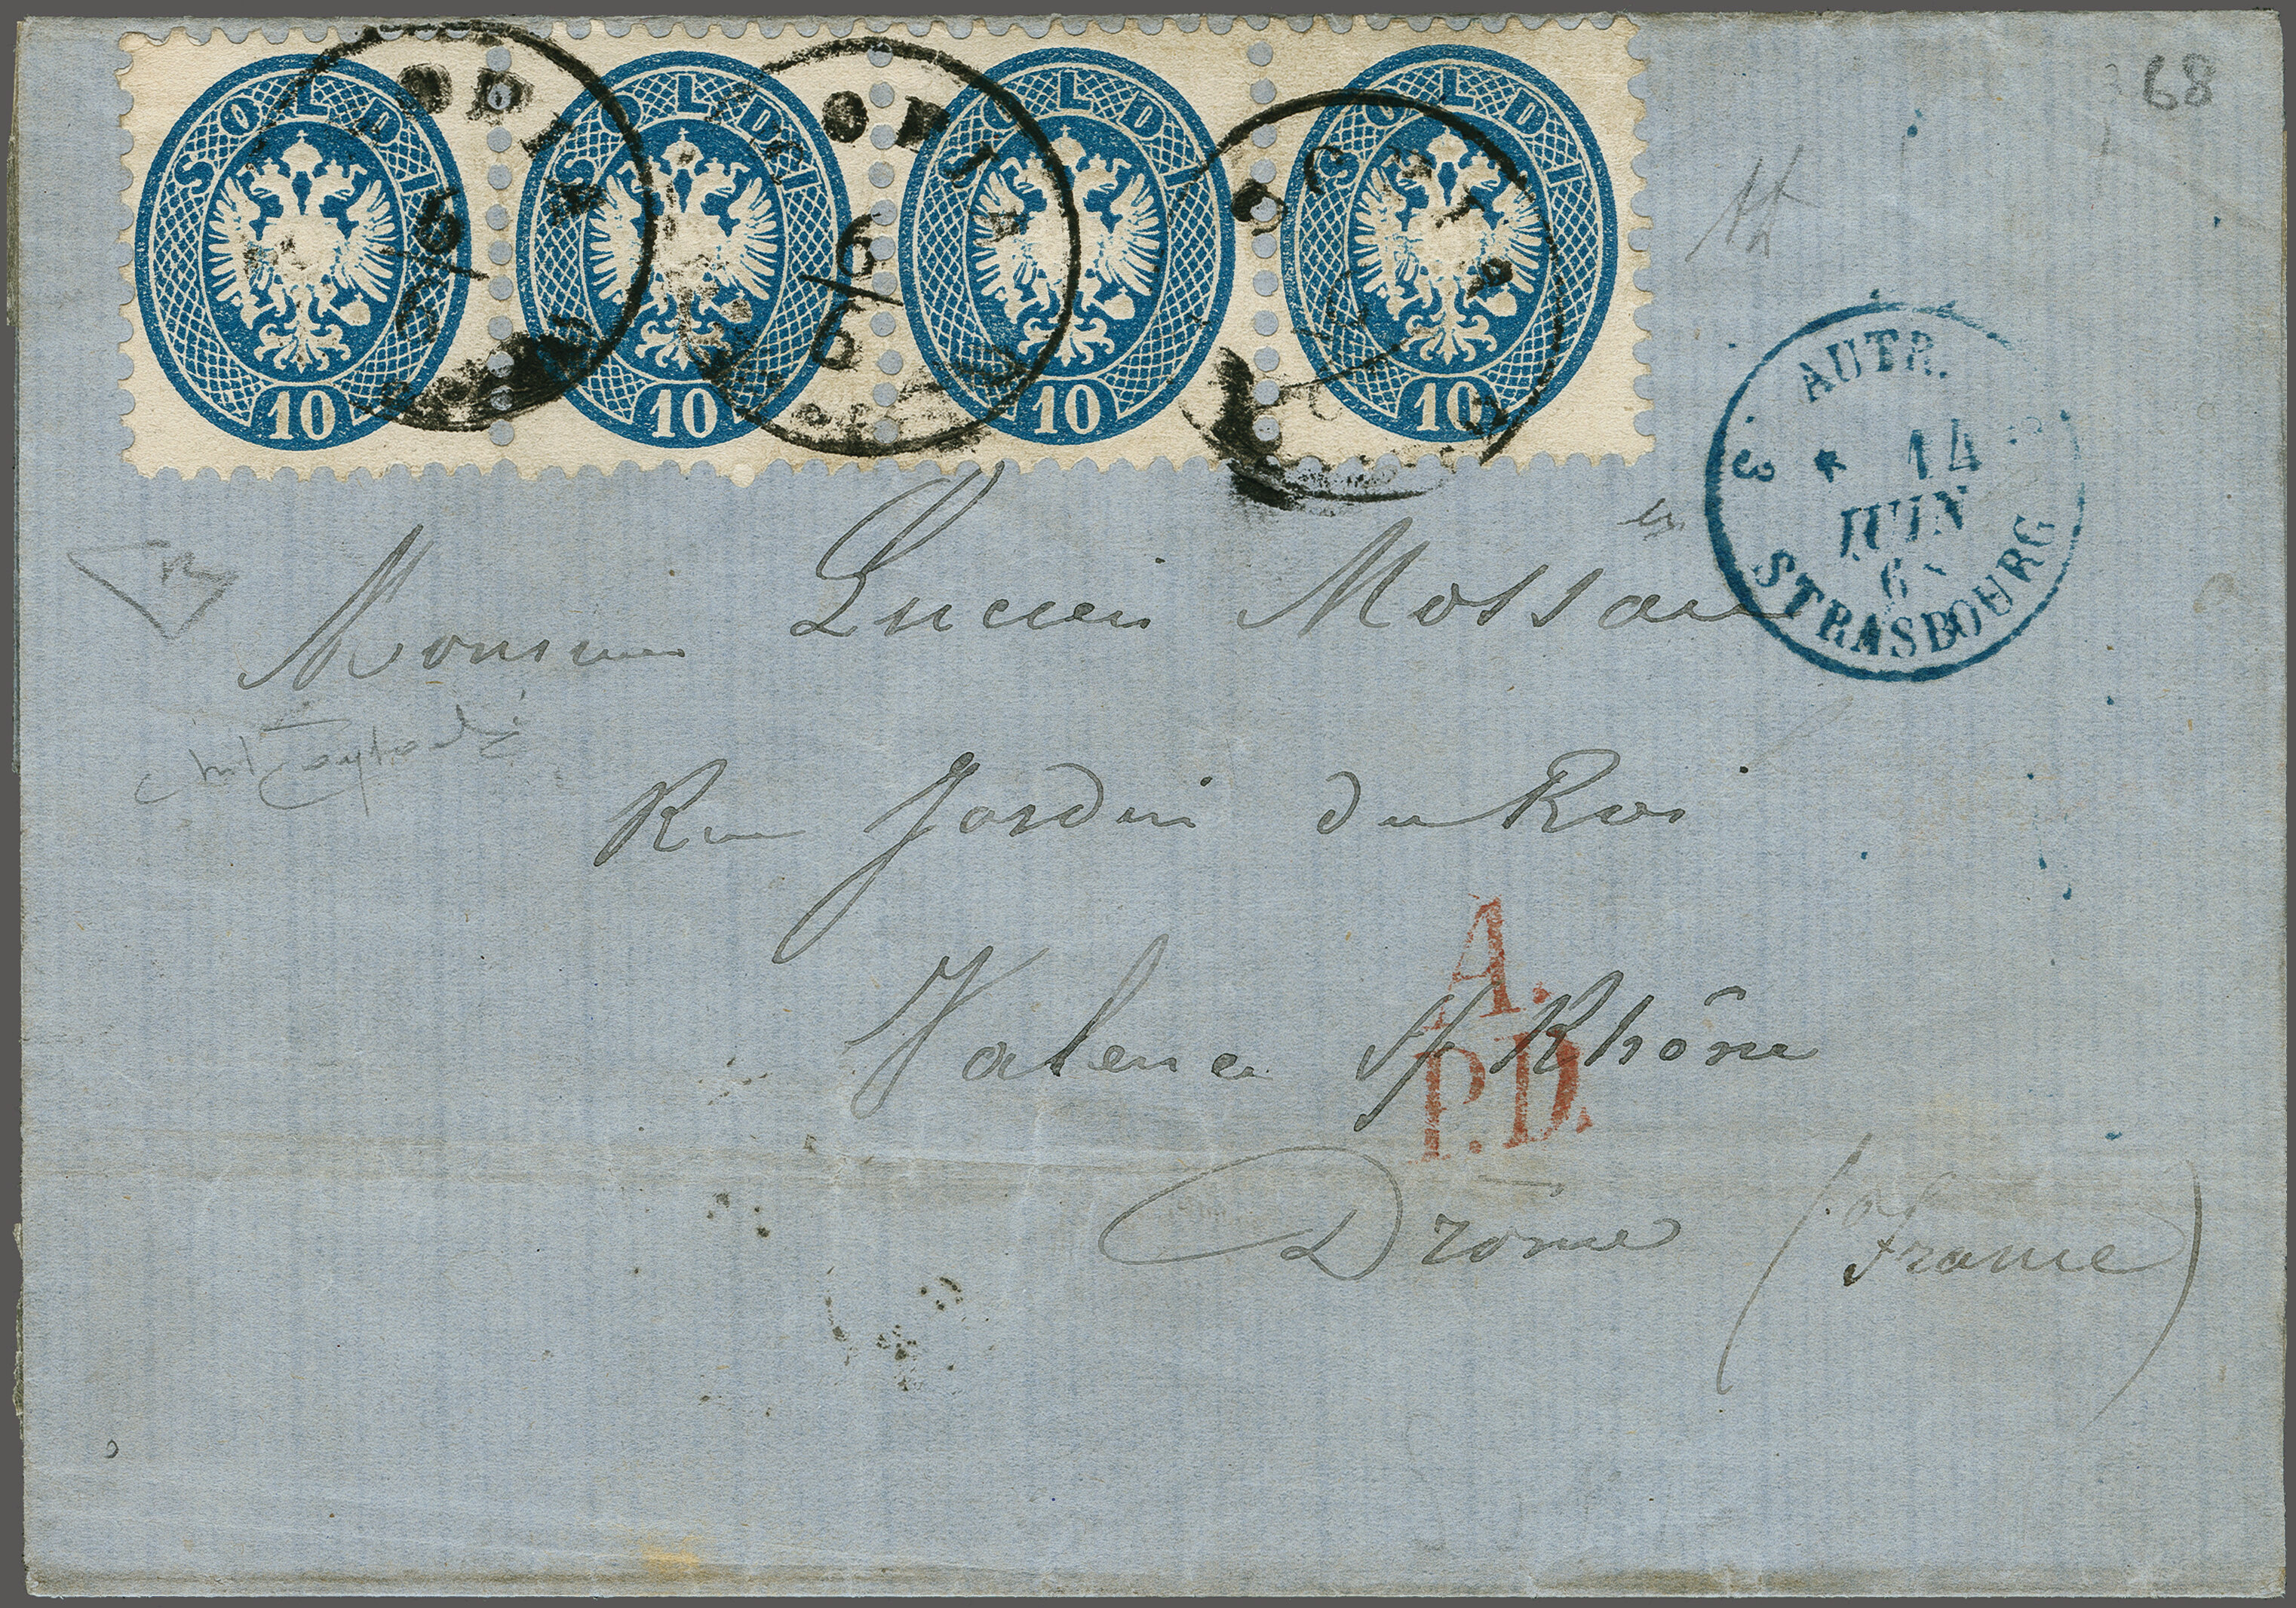 68
SOLDI SOLDI SOLDI SOLDI
10 10 10 10
6/6
AUTR.
3 * 14 3
JUIN
STRASBOURG
Monsieur Lucien Mossant
Rue Jardin du Roi
Valence s/ Rhône
A.
P.D.
Drome (France)